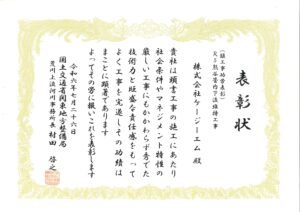 表彰状
(優工事功労表彰)
R5熊谷管内下流維持工事
株式会社ケージーエム 殿
貴社は頭書工事の施工にあたり
社会条件やマネジメント特性の
厳しい工事にもかかわらず秀でた
技術力と旺盛な責任感をもって
よく工事を完遂しその功績は
まことに顕著であります
よってその労に報いこれを表彰します
令和六年七月二十六日
国土交通省関東地方整備局
荒川上流河川事務所長 村田 啓之